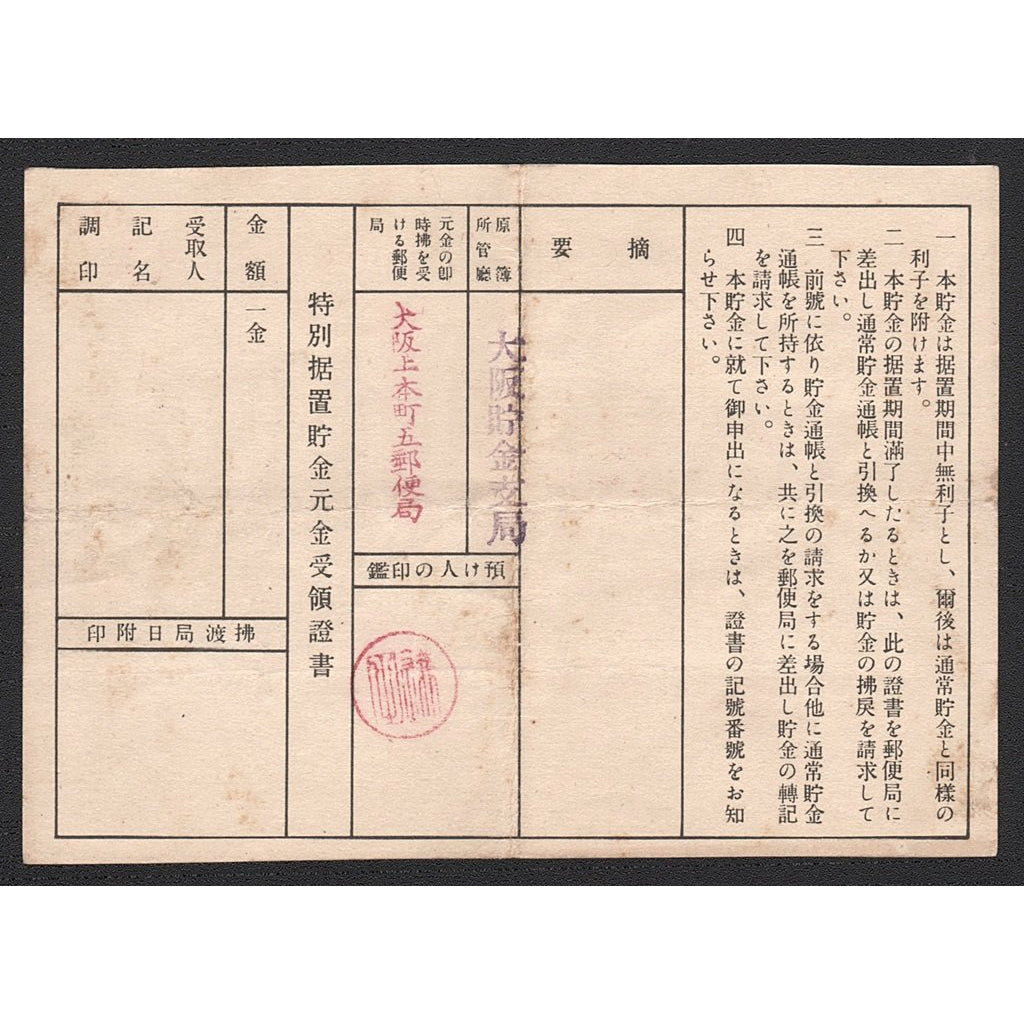 一 本貯金は据置期間中無利子とし、爾後は通常貯金と同樣の
利子を附けます。
二 本貯金の据置期間滿了したるときは、此の證書を郵便局に
差出し通常貯金通帳と引換へるか又は貯金の拂戾を請求して
下さい。
三 前號に依り貯金通帳と引換の請求をする場合他に通常貯金
通帳を所持するときは、共に之を郵便局に差出し貯金の轉記
を請求して下さい。
四 本貯金に就て御申出になるときは、證書の記號番號をお知
らせ下さい。
摘要
原簿
所管廳
大阪貯金支局
元金の卽
時拂を受
ける郵便
局
大阪上本町五郵便局
預け人の印鑑
特別据置貯金元金受領證書
金額
一金
受取人
記名
調印
拂渡局日附印